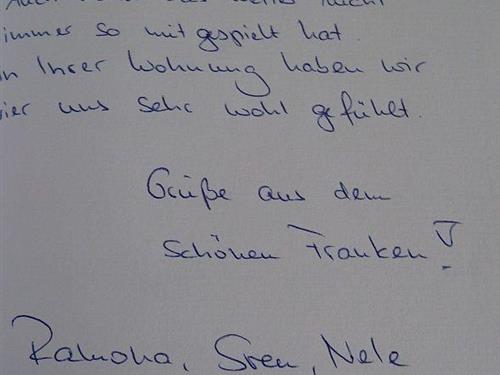 Auch wenn das Wetter nicht
immer so mitgespielt hat.
In Ihrer Wohnung haben wir
vier uns sehr wohl gefühlt.
Grüße aus dem
schönen Franken!
Ramona, Sven, Nele